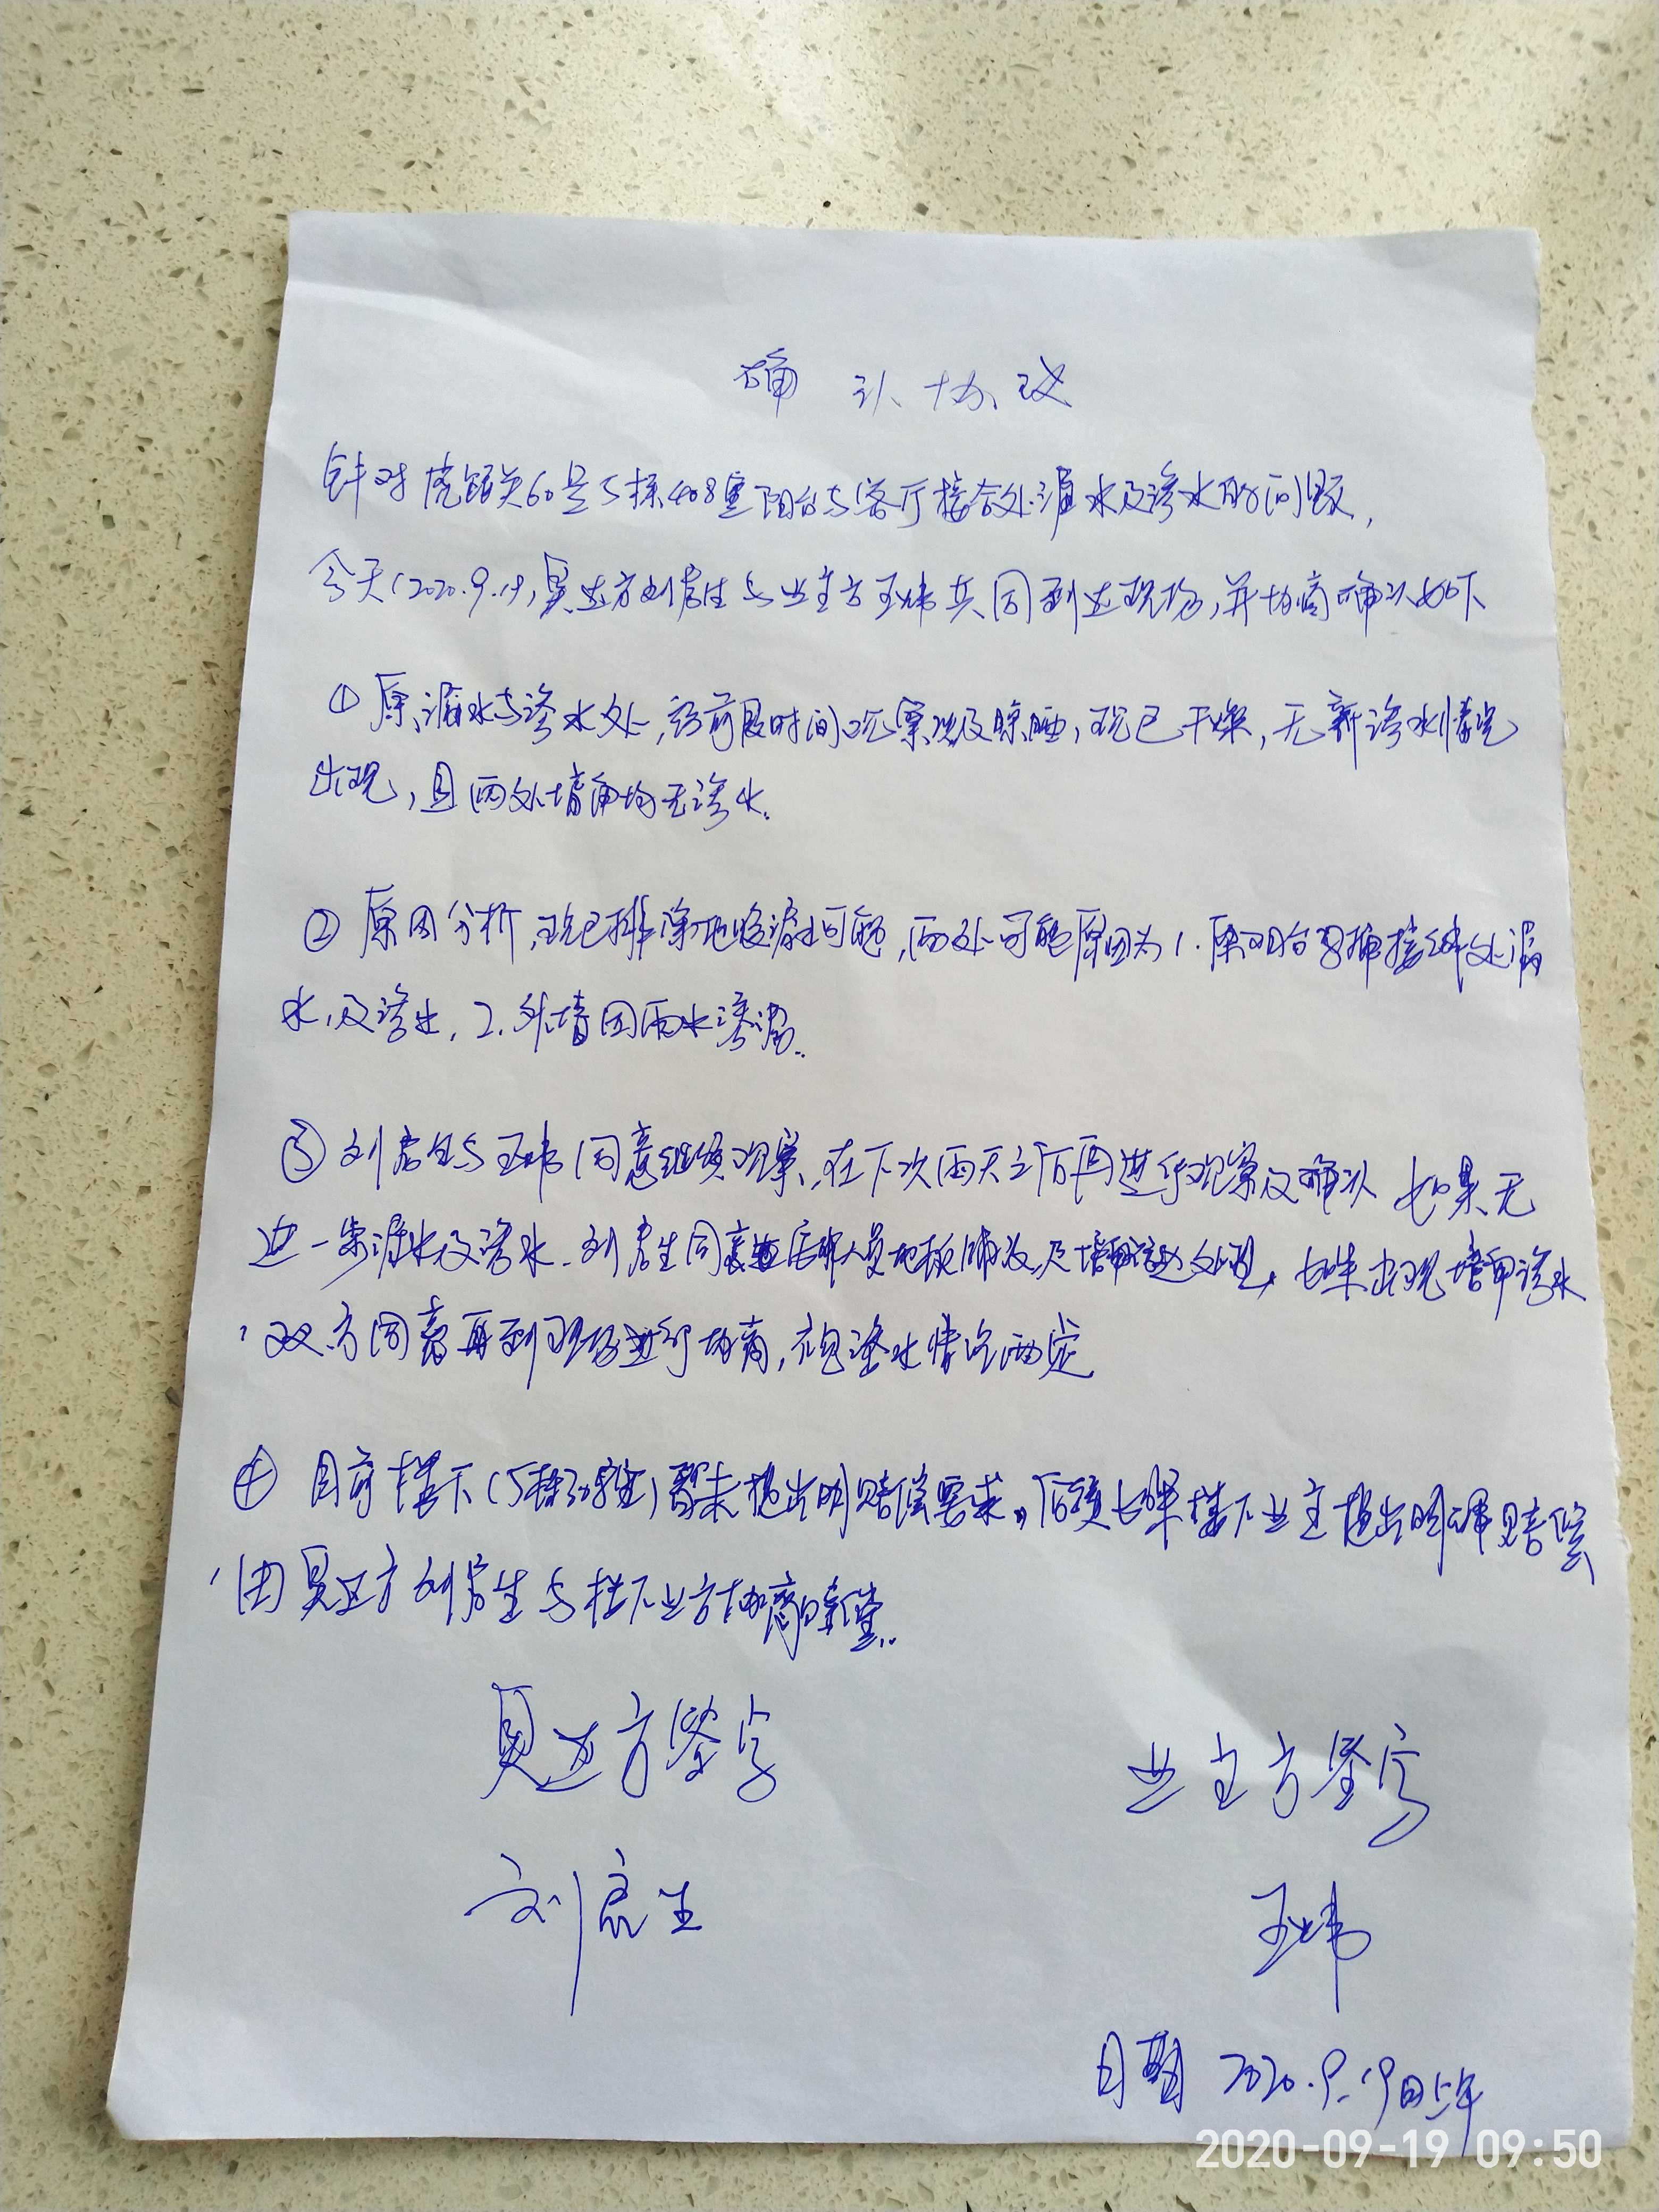 确认协议
针对虎踞关60号5栋408室阳台与客厅接合处漏水及渗水的问题,
今天(2020.9.19,昊达方刘启生与业主方王炜共同到达现场,并协商确认如下
① 原漏水与渗水处,经前段时间观察及晾晒,现已干燥,无新渗水情况
出现,且两处墙角均无渗水.
② 原因分析,现已排除地暖漏水可能,两处可能原因为1.原阳台 接缝处漏
水,及渗水,2.外墙因雨水渗漏.
③ 刘启生与王炜同意继续观察,在下次雨天之后再进行观察及确认 如果无
进一步漏水及渗水.刘启生同意 人员地板 及墙角 处理,如果出现墙角渗水
,双方同意再到现场进行协商,视渗水情况而定
④ 目前楼下(5栋 室)暂未提出明确赔偿要求,后续如果楼下业主提出明确赔偿
,由昊达方刘启生与楼下业方协商赔偿.
昊达方签字 业主方签字
刘启生 王炜
日期 2020.9.19日上午
2020-09-19 09:50